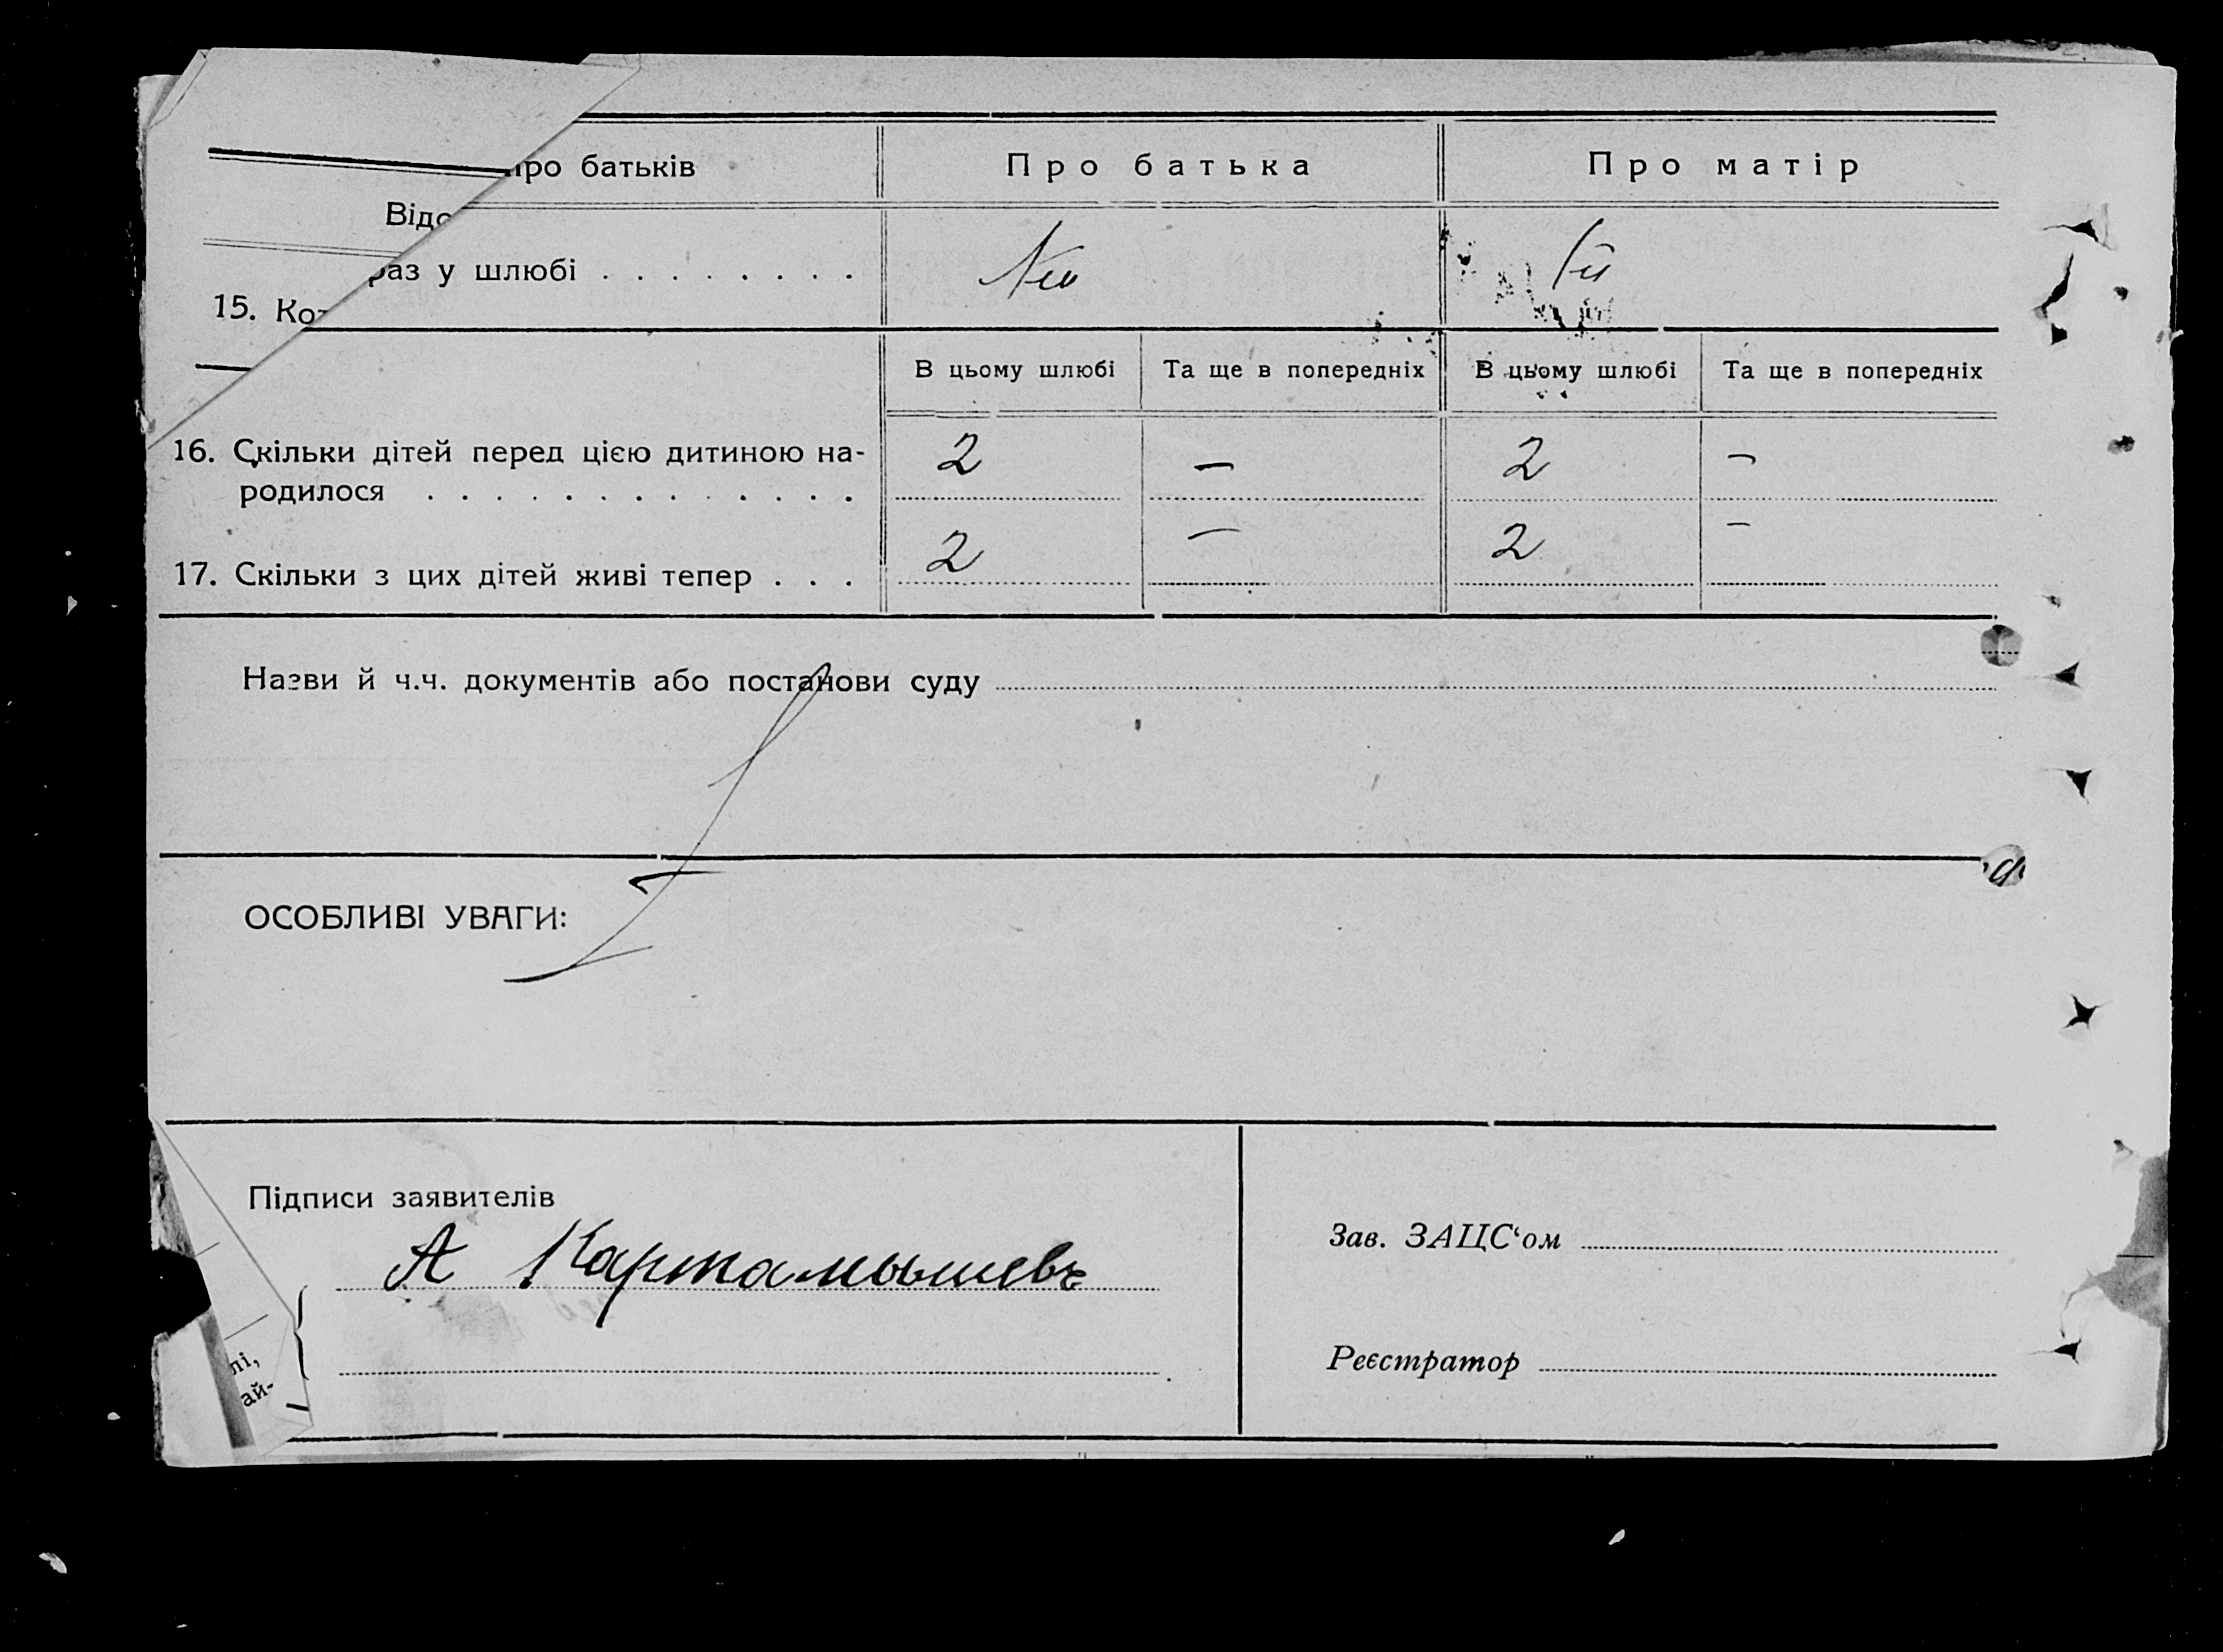 Відо про батьків Про батька Про матір
15. Ко раз у шлюбі . . . . . . . . Iй
В цьому шлюбі Та ще в попередніх В цьому шлюбі Та ще в попередніх
16. Скільки дітей перед цією дитиною на-
родилося . . . . . . . . . . . . . 2 — 2 —
17. Скільки з цих дітей живі тепер . . . 2 — 2 —
Назви й ч.ч. документів або постанови суду
ОСОБЛИВІ УВАГИ:
Підписи заявителів
А Картамышевъ
Зав. ЗАЦС‘ом
Реєстратор
лі,
ай-